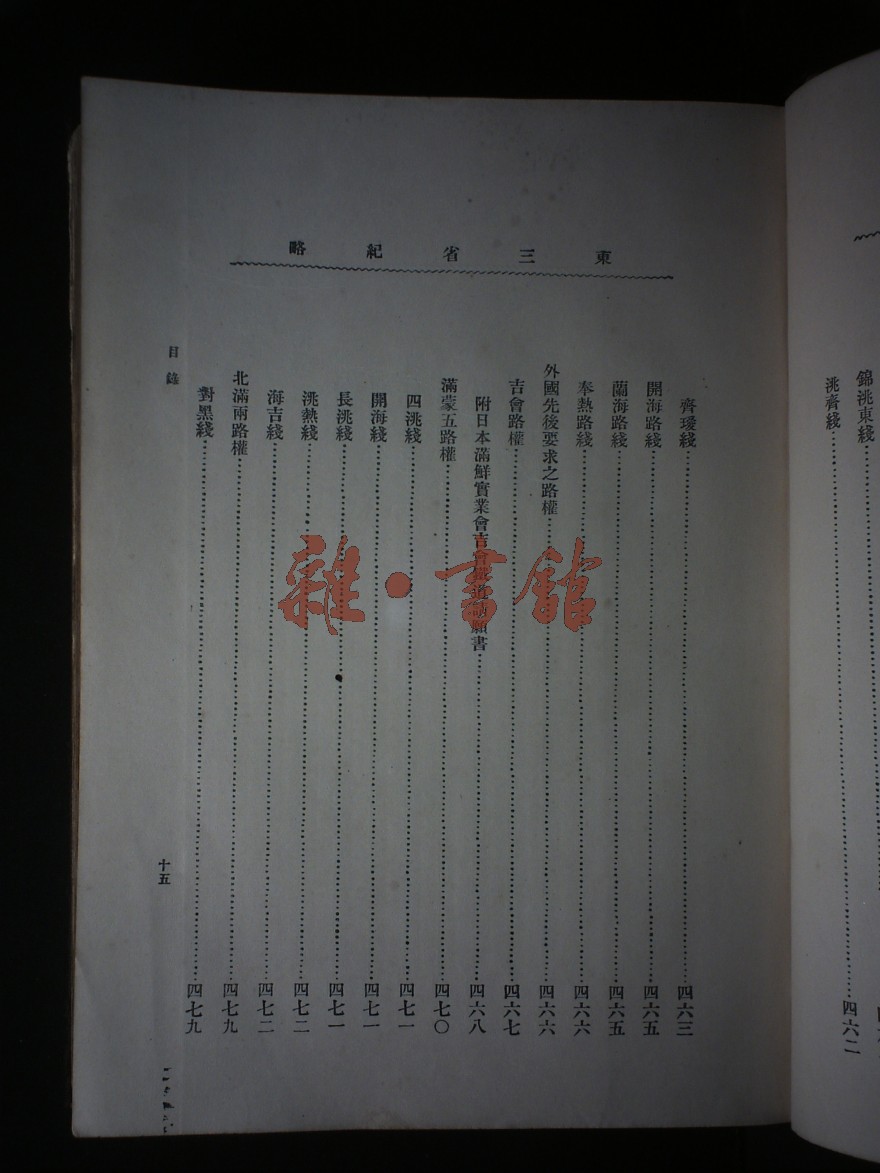 錦洮東綫
洮齊綫……四六二
東三省紀略
齊璦綫……四六三
開海路綫……四六五
蘭海路綫……四六五
奉熱路綫……四六六
外國先後要求之路權……四六六
吉會路權……四六七
附日本滿鮮實業會吉會鐵道請願書……四六八
滿蒙五路權……四七〇
四洮綫……四七一
開海綫……四七一
長洮綫……四七一
洮熱綫……四七二
海吉綫……四七二
北滿兩路權……四七九
對黑綫……四七九
目錄
十五
雜·書館